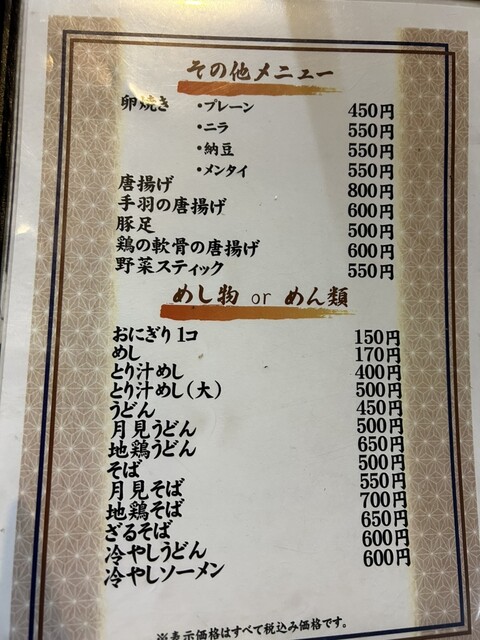 その他メニュー
卵焼き ・プレーン 450円
・ニラ 550円
・納豆 550円
・メンタイ 550円
唐揚げ 800円
手羽の唐揚げ 600円
豚足 500円
鶏の軟骨の唐揚げ 600円
野菜スティック 550円
めし物 or めん類
おにぎり1コ 150円
めし 170円
とり汁めし 400円
とり汁めし(大) 500円
うどん 450円
月見うどん 500円
地鶏うどん 650円
そば 500円
月見そば 550円
地鶏そば 700円
ざるそば 650円
冷やしうどん 600円
冷やしソーメン 600円
※表示価格はすべて税込み価格です。